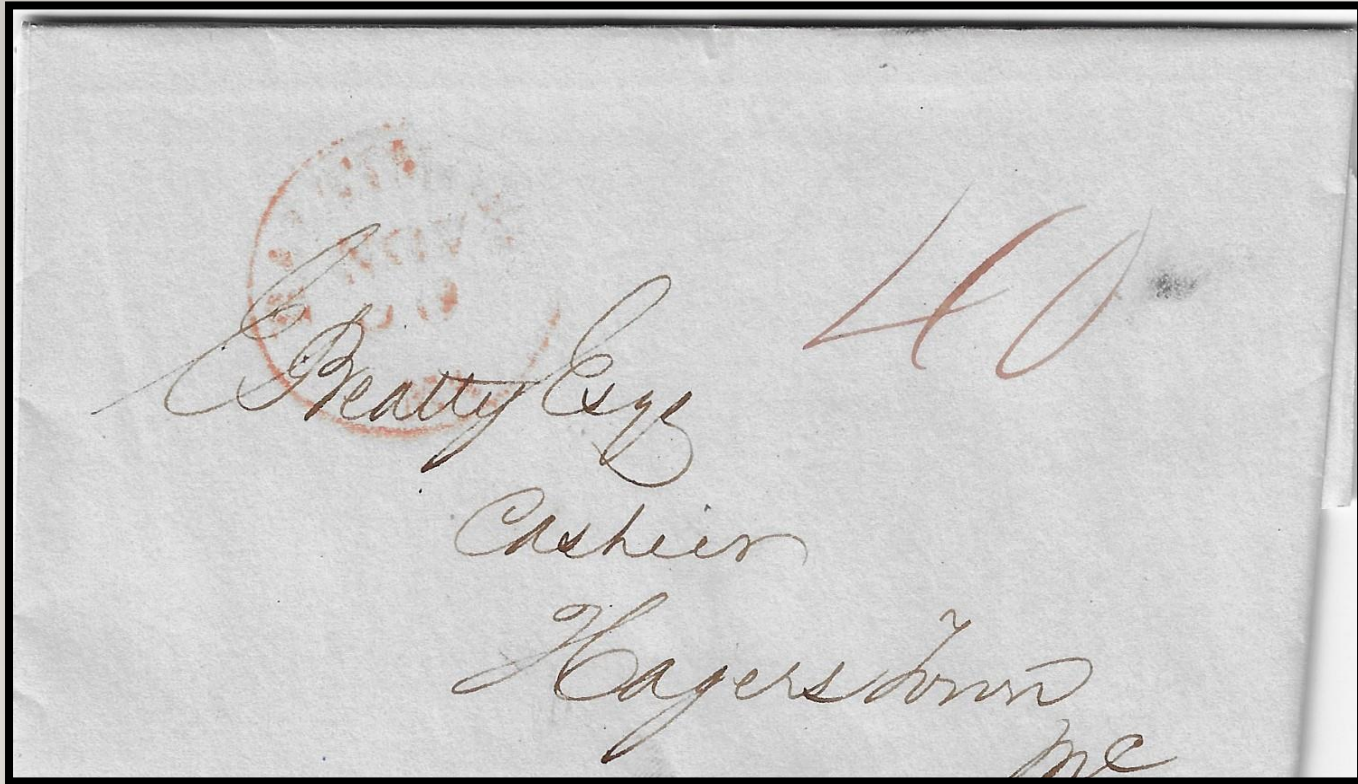 NOV
40
E Beatty Esqr
Cashier
Hagerstown